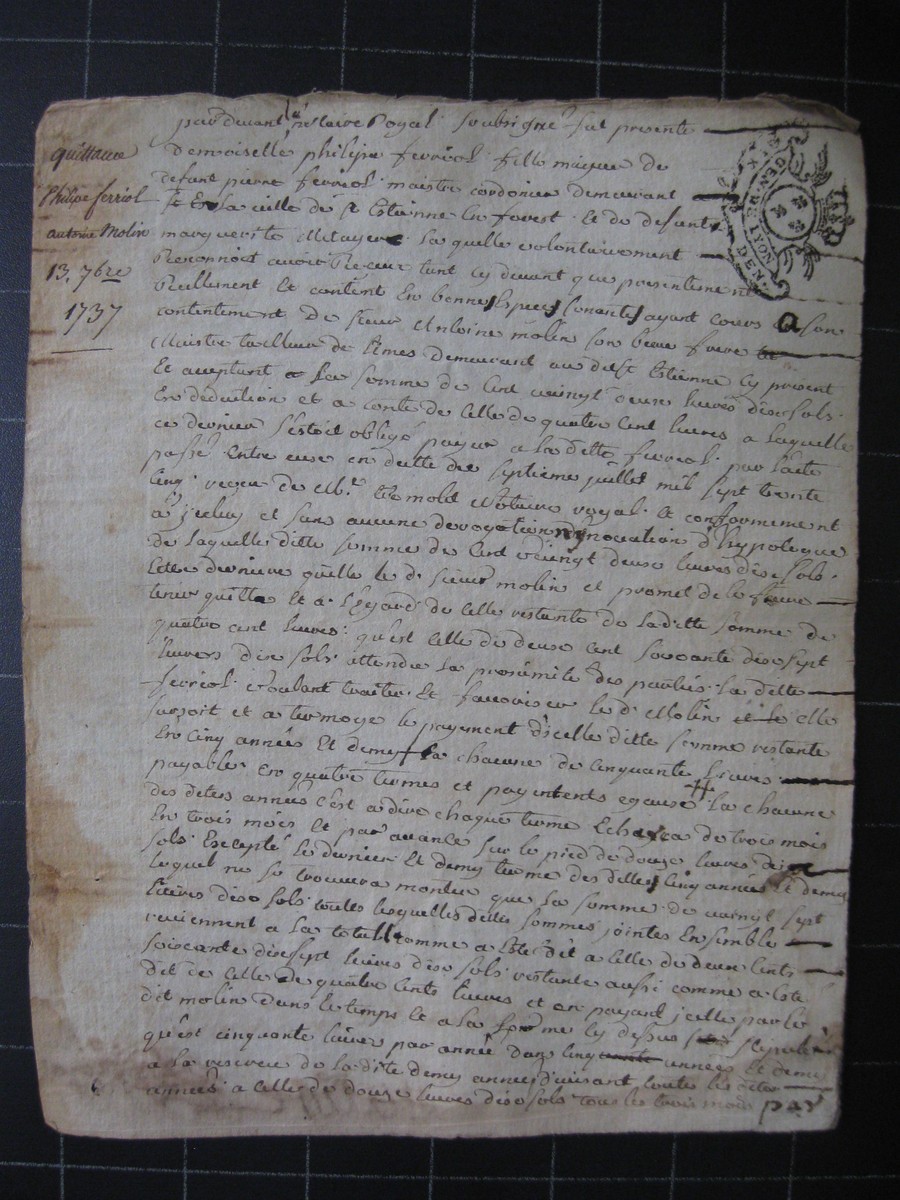 quittance
Philipe ferriol
antoine Molin
13. 7bre
1737
par devant le notaire Royal soubsigné fut presente
demoiselle philipe ferriol fille majeure de
defunt pierre ferriol maistre cordonier demeurant
en la ville de st Etienne en forest et de defunte
marguerite Mitayer laquelle volontairement
Reconnoit avoir Receu tant cy devant que presentement
Reellement et content en bonnes Especes sonantes ayant cours a son
contentement de sieur Antoine molin son beau frere
Maistre tailleur de Limes demeurant audit st Etienne cy present
Et aceptant la somme de Cent vaingt deux livres dix sols
En deduction et a conte de celle de quatre cent livres a laquelle
ce dernier s'estoit obligé payer a la ditte ferriol par l'acte
passé Entre eux en datte du septieme juillet mil sept trente
cinq receu de Me notaire royal et conformement
a jceluy et sans aucune derogation ny novation d'hypoteque
de laquelle ditte somme de Cent vaingt deux livres dix sols
cette derniere quitte le dt sieur molin et promet de le faire
tenir quitte Et a l'egard de celle restante de laditte somme de
quatre cent livres qu'est celle de deux cent soixante dix sept
livres dix sols attendu la proximité des parties la ditte
ferriol voulant traiter Et favoriser le dt Molin elle
sursoit et atermoye le payement d'icelle ditte somme restante
En cinq années Et demy a chacune de cinquante livres
payables en quatre termes et payements egaux la chacune
des dites années c'est a dire chaque terme Echerra de trois mois
En trois mois et par avance sur le pied de douze livres dix
sols Excepté le dernier Et demy terme des dittes cinq années Et demy
lequel ne se trouvera monter que la somme de vaingt sept
livres dix sols toutes lesquelles dittes sommes jointes Ensemble
reviennent a la totalle comme a esté dit a celle de deux cents
soixante dix sept livres dix sols restante aussi comme a esté
dit de celle de quatre cents livres et en payant jcelle par le
dit molin dans le temps et a la forme cy dessus stipulée
qu'est cinquante livres par année dans cinq années et demy
a la reserve de la dite demy année divisant toutes les dites
années a celle de douze livres dix sols tous les trois mois par
DEN. LYON